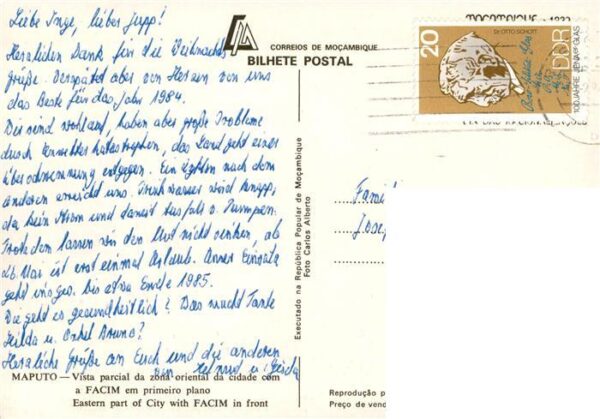 Liebe Inge, lieber Jupp!
Herzlichen Dank für die Weihnachts
grüße. Verspätet aber von Herzen von uns
das Beste für das Jahr 1984.
Wir sind wohlauf, haben aber große Probleme
durch Unwetterkatastrophen, das Land geht einer
Überschwemmung entgegen. Ein Zyklon nach dem
anderen erreicht uns. Trinkwasser wird knapp,
da kein Strom und damit Ausfall v. Pumpen.
Trotzdem lassen wir den Mut nicht sinken, ab
Mai ist erst einmal Urlaub. Unser Einsatz
geht insges. bis etwa Ende 1985.
Wie geht es gesundheitlich? Was macht Tante
Hilda u. Onkel Bruno?
Herzliche Grüße an Euch und die anderen
von Helmut u. Gisela
CORREIOS DE MOÇAMBIQUE
BILHETE POSTAL
MOÇAMBIQUE
20
Dr. OTTO SCHOTT
DDR
100 JAHRE JENAer GLAS
Executado na República Popular de Moçambique
Foto Carlos Alberto
Famil
Josep
MAPUTO — Vista parcial da zona oriental da cidade com
a FACIM em primeiro plano
Eastern part of City with FACIM in front
Reprodução p
Preço de vend